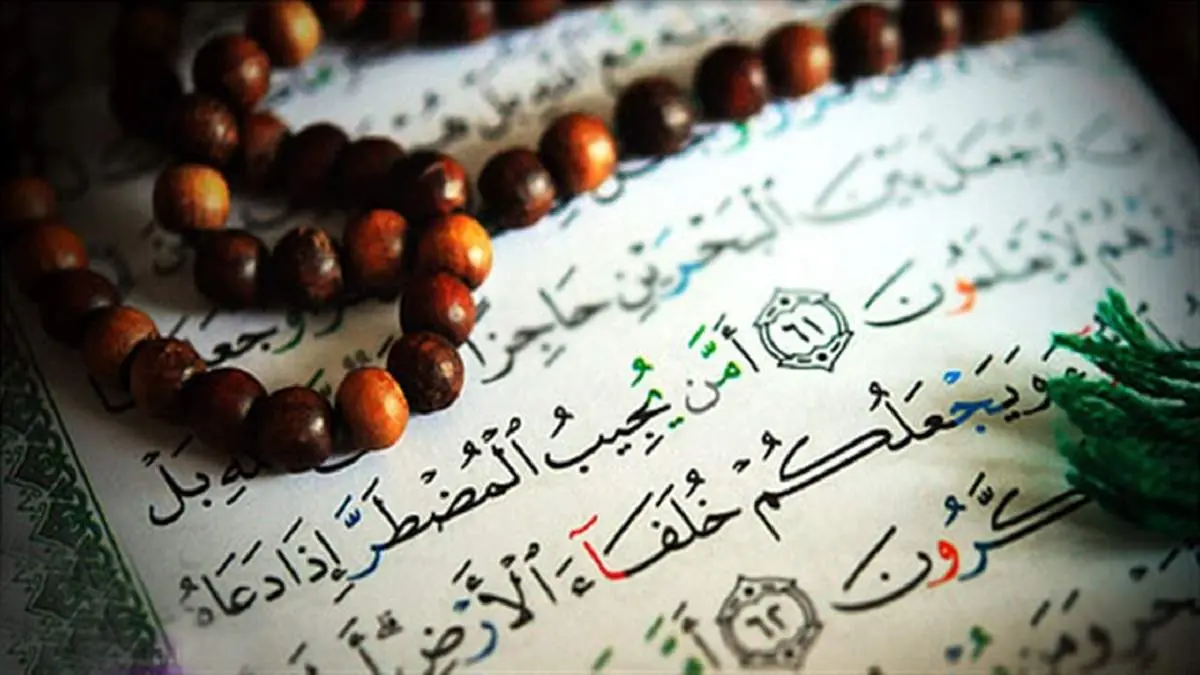 مَّعَ ٱللَّهِ بَلْ
وَجَعَلَ
وَجَعَلَ بَيْنَ ٱلْبَحْرَيْنِ حَاجِزًا بَلْ
لَا يَعْلَمُونَ ٦١ أَمَّن يُجِيبُ ٱلْمُضْطَرَّ إِذَا دَعَاهُ
وَيَجْعَلُكُمْ خُلَفَآءَ ٱلْأَرْضِ
كَّرُونَ ٦٢ أَمَّن
وَمَن